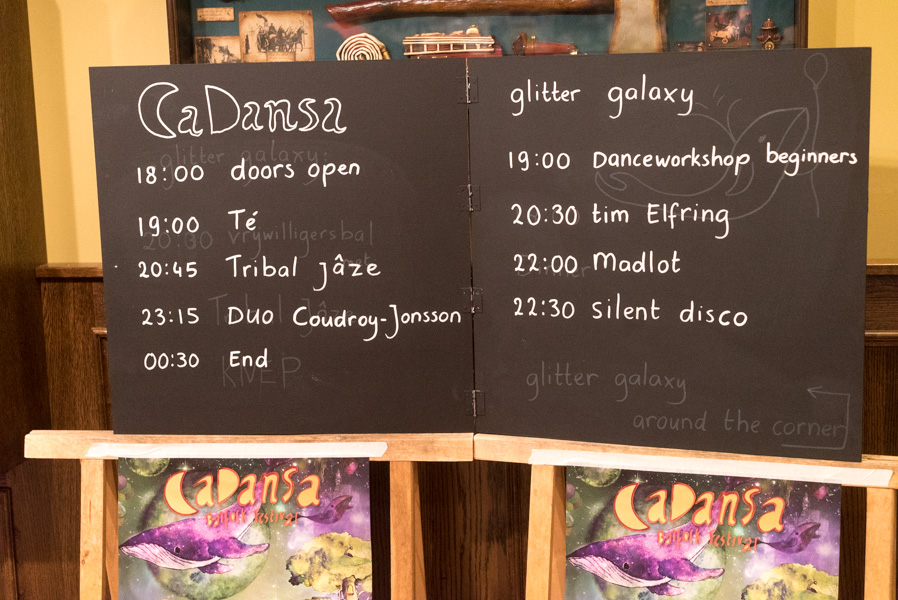 CaDansa
glitter galaxy
18:00 doors open
19:00 Té
20:00 vrywilligersbal
20:45 Tribal jâze
23:15 Duo Coudroy-Jonsson
00:30 End
KNEP
glitter galaxy
19:00 Danceworkshop beginners
20:30 tim Elfring
22:00 Madlot
22:30 silent disco
glitter galaxy
around the corner
CaDansa
Balfolk Festival
CaDansa
Balfolk Festival